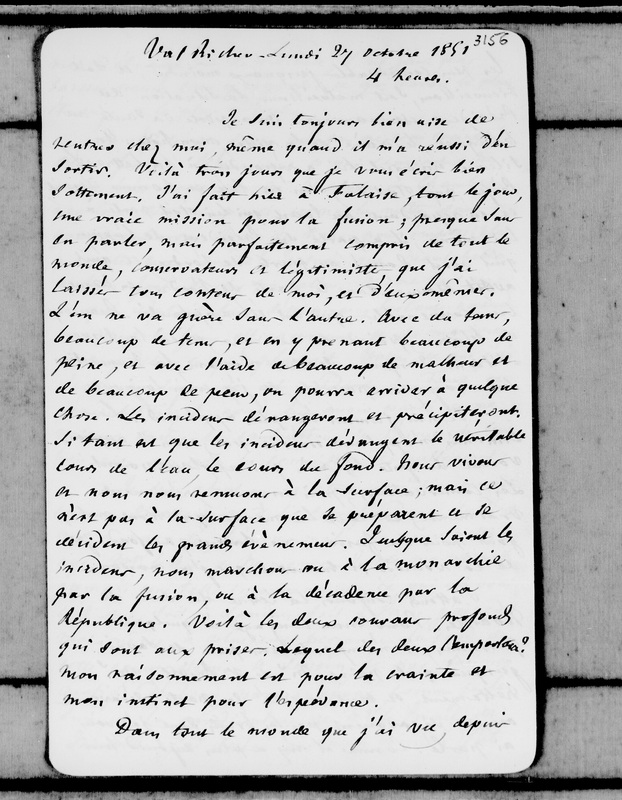 3156
Val Richer - Lundi 27 octobre 1851
4 heures.
Je suis toujours bien aise de
rentrer chez moi, même quand il m'a réussi d'en
sortir. Voilà trois jours que je vous écris bien
sottement. J'ai fait hier à Falaise, tout le jour,
une vraie mission pour la fusion ; presque sans
en parler, mais parfaitement compris de tout le
monde, conservateurs et légitimistes que j'ai
laissés tous contens de moi, et d'eux-mêmes.
L'un ne va guère sans l'autre. Avec du tems,
beaucoup de tems, et en y prenant beaucoup de
peine, et avec l'aide de beaucoup de malheur et
de beaucoup de peur, on pourra arriver à quelque
chose. Les incidens dérangeront et précipiteront.
Si tant est que les incidens dérangent le véritable
cours de l'eau, le cours du fond. Nous vivons
et nous nous remuons à la surface ; mais ce
n'est pas à la surface que se préparent et se
décident les grands évènemens. Quelques soient les
incidens, nous marchons ou à la monarchie
par la fusion, ou à la décadence par la
République. Voilà les deux courans profonds
qui sont aux prises. Lequel des deux l'emportera ?
Mon raisonnement est pour la crainte et
mon instinct pour l'espérance.
Dans tout le monde que j'ai vu depuis